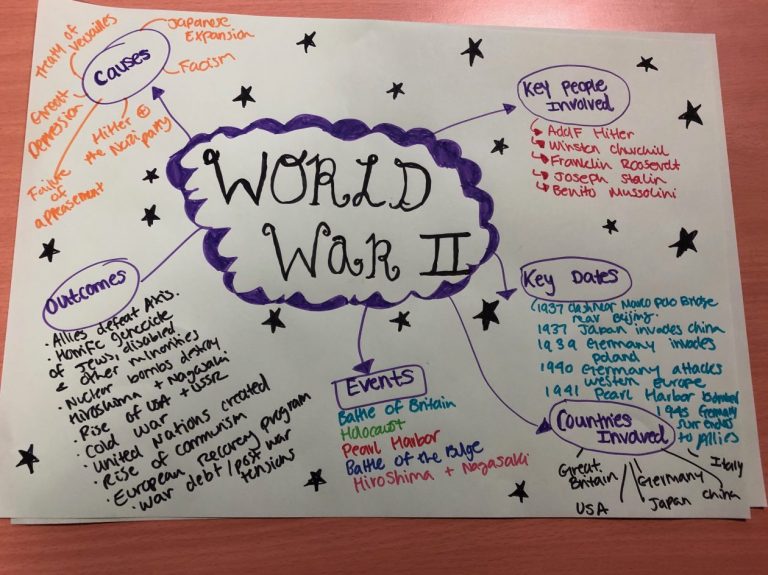 WORLD
WAR II
Causes
Treaty of
Versailles
Japanese
Expansion
Facism
Great
Depression
Hitler +
the Nazi party
Failure
of
appeasement
Key People
Involved
Adolf Hitler
Winston Churchill
Franklin Roosevelt
Joseph Stalin
Benito Mussolini
Key Dates
1937 clash near Marco Polo Bridge
near Beijing.
1937 Japan invades China
1939 Germany invades
Poland
1940 Germany attacks
Western Europe
1941 Pearl Harbor bombed
1945 Germany
surrenders
to Allies
Countries
Involved
Great
Britain
USA
Germany
Japan
China
Italy
Events
Battle of Britain
Holocaust
Pearl Harbor
Battle of the Bulge
Hiroshima + Nagasaki
Outcomes
· Allies defeat Axis.
· Horrific genocide
of Jews, disabled
& other minorities
· Nuclear bombs destroy
Hiroshima + Nagasaki
· Rise of USA + USSR
· Cold War
· United Nations created
· Rise of communism
· European Recovery program
· War debt/post war
tensions